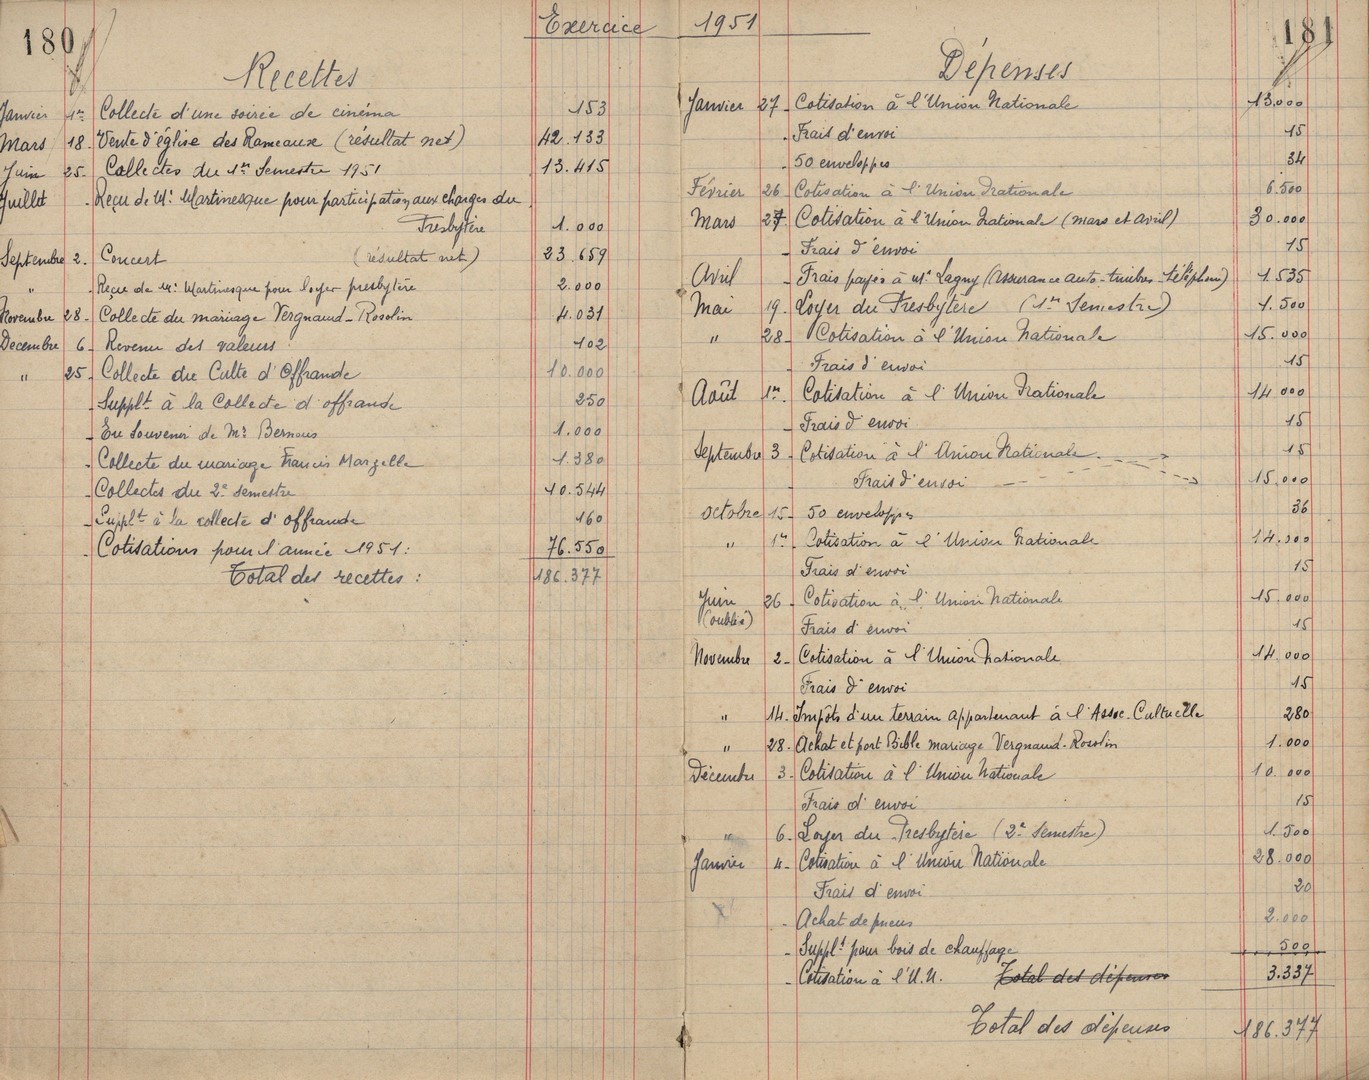 180
Exercice 1951
Recettes
Janvier 1er Collecte d'une soirée de cinéma 153
Mars 18- Vente d'église des Rameaux (résultat net) 42.133
Juin 25- Collectes du 1er Semestre 1951 13.415
Juillet - Reçu de Mr Martinesque pour participation aux charges du
Presbytère 1.000
Septembre 2- Concert (résultat net) 23.659
" - Reçu de Mr Martinesque pour loyer presbytère 2.000
Novembre 28- Collecte du mariage Vergnaud-Rosolin 4.031
Decembre 6- Revenu des valeurs 102
" 25- Collecte du Culte d'Offrande 10.000
- Supplt à la Collecte d'offrande 250
- En Souvenir de Mr 1.000
- Collecte du mariage Francis Marzelle 1.380
- Collectes du 2e semestre 10.544
- Supplt à la collecte d'offrande 160
- Cotisations pour l'année 1951: 76.550
Total des recettes: 186.377
181
Dépenses
Janvier 27- Cotisation à l'Union Nationale 13.000
- Frais d'envoi 15
- 50 enveloppes 34
Février 26 Cotisation à l'Union Nationale 6.500
Mars 27- Cotisation à l'Union Nationale (mars et avril) 30.000
- Frais d'envoi 15
Avril - Frais payés à Mr Lagny (Assurance auto-timbres-téléphone) 1.535
Mai 19- Loyer du Presbytère (1er Semestre) 1.500
" 28- Cotisation à l'Union Nationale 15.000
- Frais d'envoi 15
Août 1er- Cotisation à l'Union Nationale 14.000
- Frais d'envoi 15
Septembre 3- Cotisation à l'Union Nationale 15
- Frais d'envoi 15.000
octobre 15- 50 enveloppes 36
" 1er- Cotisation à l'Union Nationale 14.000
Frais d'envoi 15
Juin 26- Cotisation à l'Union Nationale 15.000
(oubliés) Frais d'envoi 15
Novembre 2- Cotisation à l'Union Nationale 14.000
Frais d'envoi 15
" 14- Impôts d'un terrain appartenant à l'Assoc. Cultuelle 280
" 28- Achat et port Bible mariage Vergnaud-Rosolin 1.000
Décembre 3- Cotisation à l'Union Nationale 10.000
Frais d'envoi 15
" 6- Loyer du Presbytère (2e Semestre) 1.500
Janvier 4- Cotisation à l'Union Nationale 28.000
Frais d'envoi 20
- Achat de pneus 2.000
- Supplt pour bois de chauffage 500
- Cotisation à l'U.N. Total des dépenses 3.337
Total des dépenses 186.377